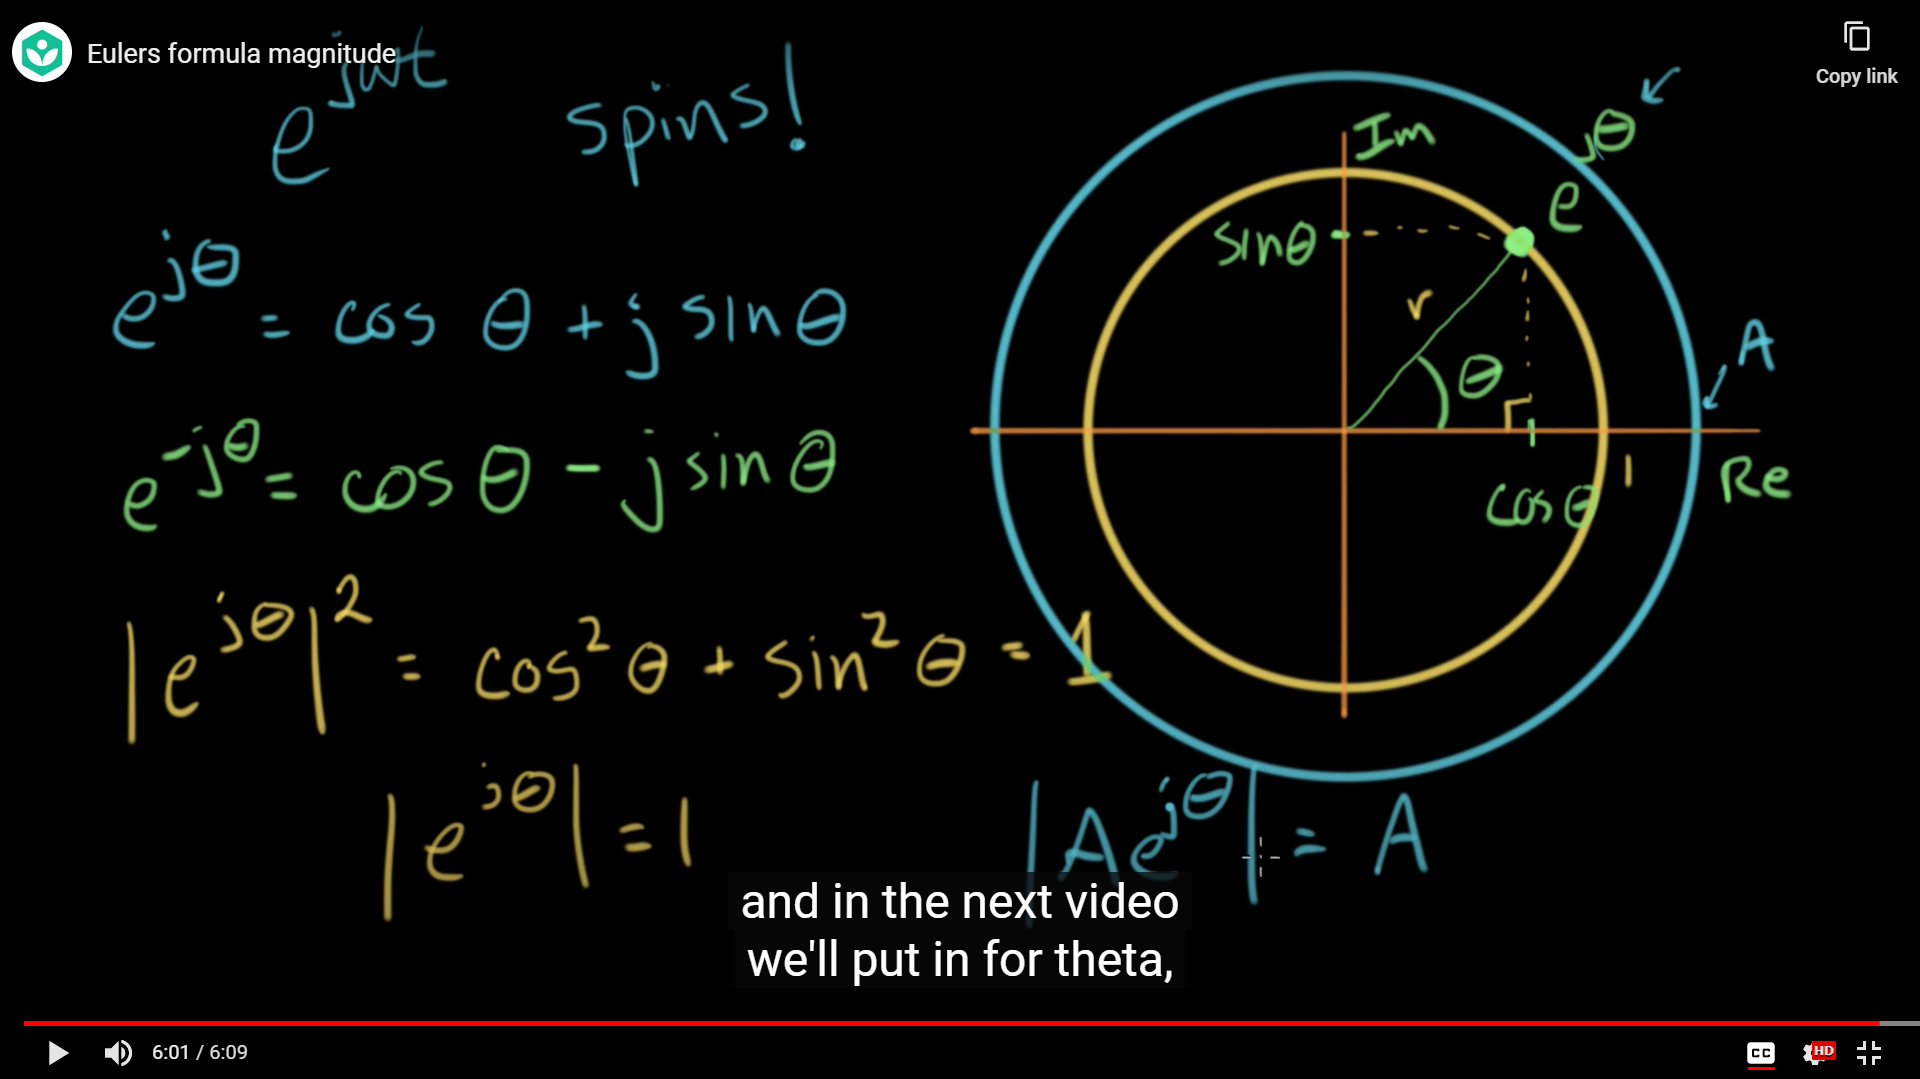 Eulers formula magnitude
Copy link
e^{jωt} spins!
e^{jθ} = cos θ + j sin θ
e^{-jθ} = cos θ - j sin θ
|e^{jθ}|² = cos² θ + sin² θ = 1
|e^{jθ}| = 1
|Ae^{jθ}| = A
Im
e^{jθ}
sinθ
r
θ
A
1
Re
cosθ
and in the next video
we'll put in for theta,
6:01 / 6:09
CC
HD